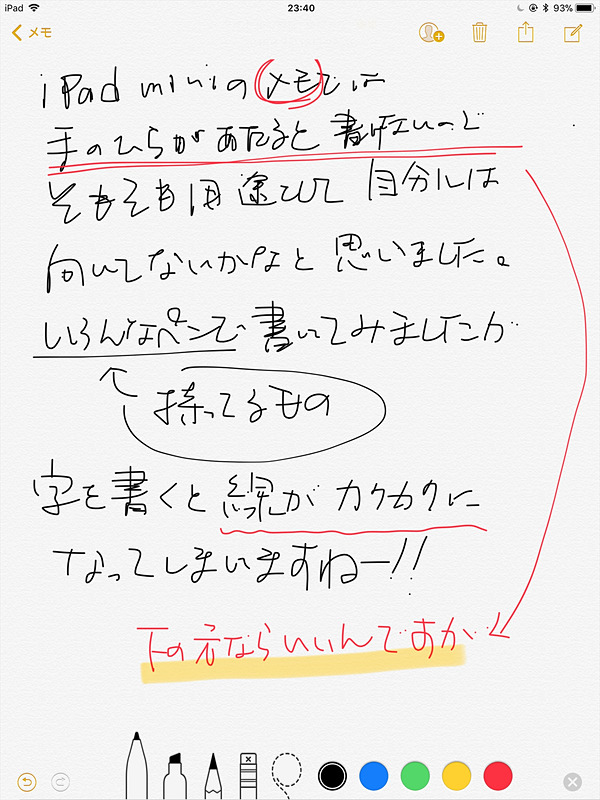 iPad
23:40
93%
メモ
iPad miniのメモでは
手のひらがあたると書けないので
そもそも用途として自分には
向いてないかなと思いました。
いろんなペンで書いてみましたが
持ってるもの
字を書くと線がカクカクに
なってしまいますねー!!
下の方ならいいんですが